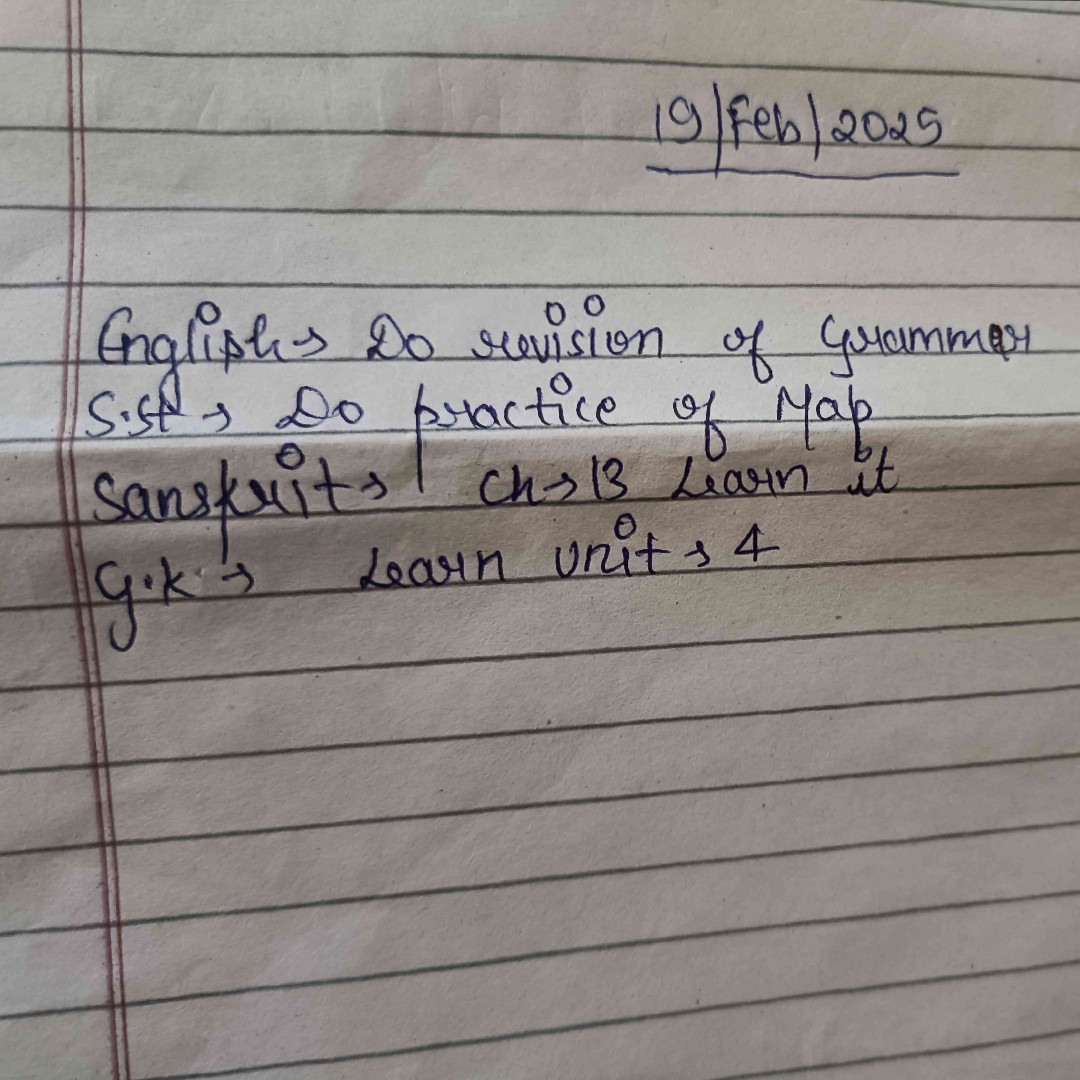 19/Feb/2025
English → Do revision of Grammar
S.st → Do practice of Map
Sanskrit → Ch → 13 Learn it
G.K → Learn unit → 4